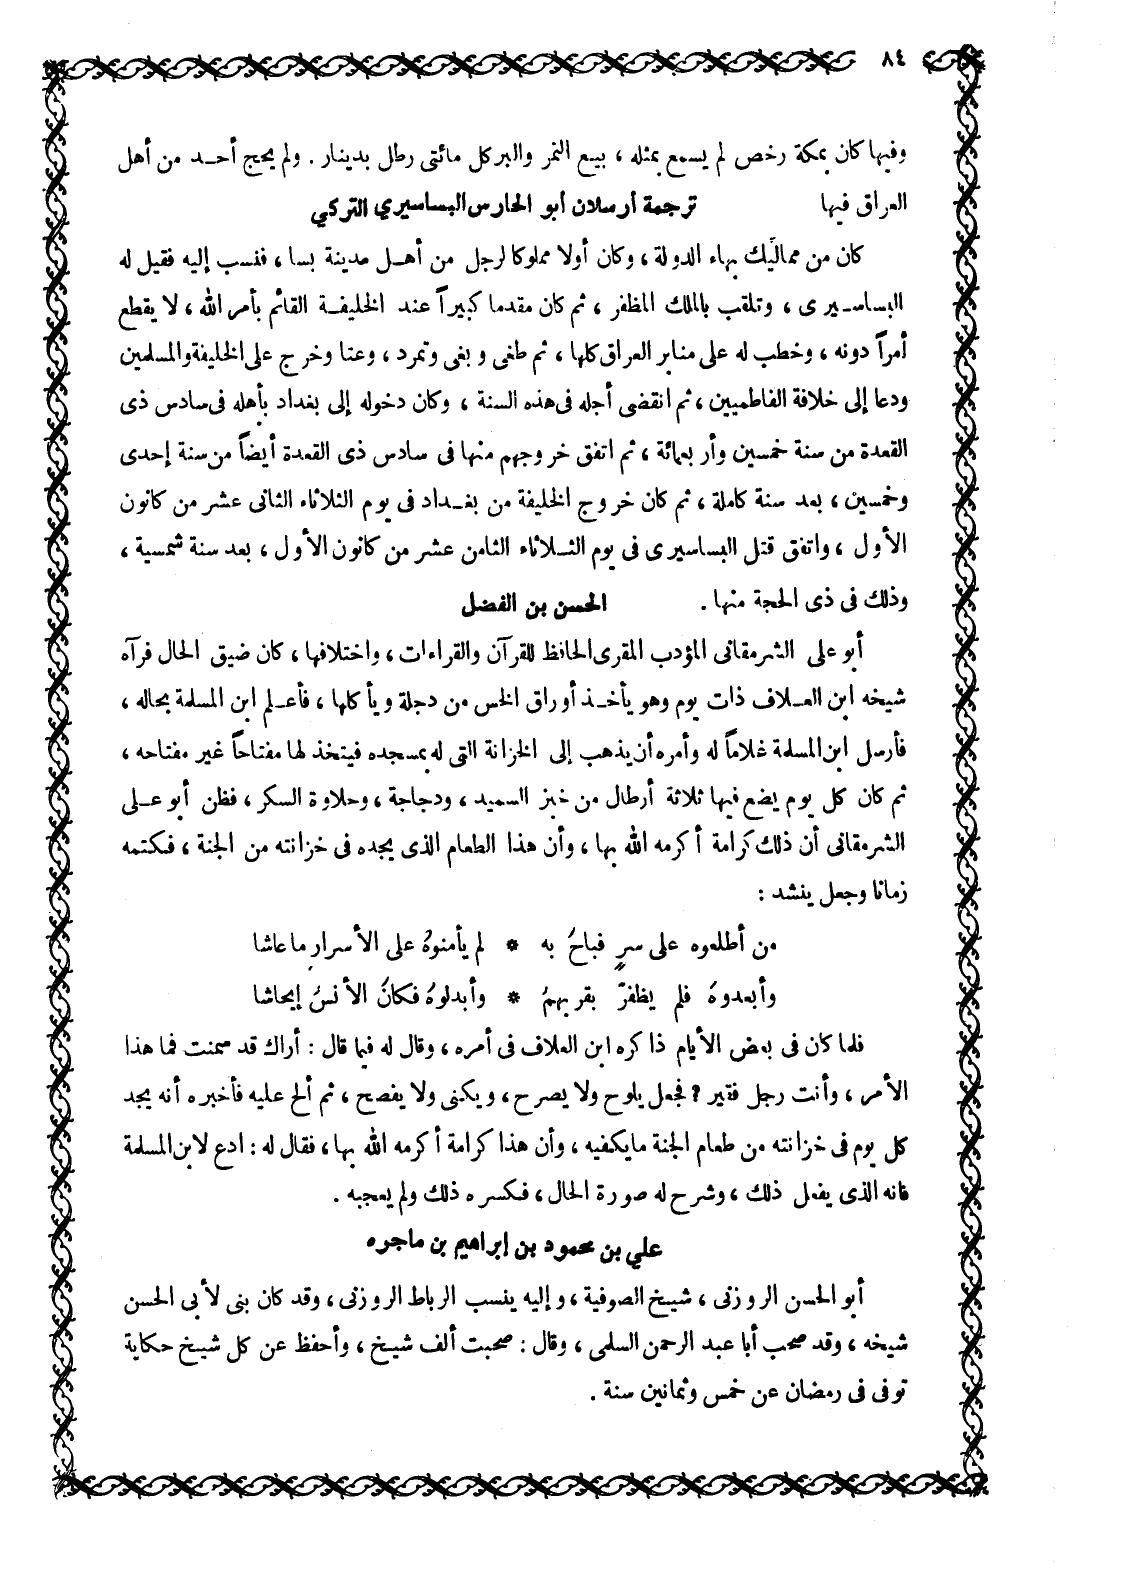 ٨٤
وفيها كان بمكة رخص لم يسمع بمثله ، بيع التمر والبر كل مائتى رطل بدينار . ولم يحج أحد من أهل
العراق فيها ترجمة أرسلان أبو الحارس البساسيري التركي
كان من مماليك بهاء الدولة ، وكان أولا مملوكا لرجل من أهل مدينة بسا ، فنسب إليه فقيل له
البساسيرى ، وتلقب بالملك المظفر ، ثم كان مقدما كبيراً عند الخليفة القائم بأمر الله ، لا يقطع
أمراً دونه ، وخطب له على منابر العراق كلها ، ثم طغى وبغى وتمرد ، وعتا وخرج على الخليفة والمسلمين
ودعا إلى خلافة الفاطميين ، ثم انقضى أجله فى هذه السنة ، وكان دخوله إلى بغداد بأهله فى سادس ذى
القعدة من سنة خمسين وأربعمائة ، ثم اتفق خروجهم منها فى سادس ذى القعدة أيضاً من سنة إحدى
وخمسين ، بعد سنة كاملة ، ثم كان خروج الخليفة من بغداد فى يوم الثلاثاء الثانى عشر من كانون
الأول ، واتفق قتل البساسيرى فى يوم الثلاثاء الثامن عشر من كانون الأول ، بعد سنة شمسية ،
وذلك فى ذى الحجة منها . الحسن بن الفضل
أبو على الشرمقانى المؤدب المقرى الحافظ للقرآن والقراءات ، واختلافها ، كان ضيق الحال فرآه
شيخه ابن العلاف ذات يوم وهو يأخذ أوراق الخس من دجلة ويأكلها ، فأعلم ابن المسلمة بحاله ،
فأرسل ابن المسلمة غلاماً له وأمره أن يذهب إلى الخزانة التى له بمسجده فيتخذ لها مفتاحاً غير مفتاحه ،
ثم كان كل يوم يضع فيها ثلاثة أرطال من خبز السميد ، ودجاجة ، وحلاوة السكر ، فظن أبو على
الشرمقانى أن ذلك كرامة أكرمه الله بها ، وأن هذا الطعام الذى يجده فى خزانته من الجنة ، فكتمه
زمانا وجعل ينشد :
من أطلعوه على سرٍ فباحُ به * لم يأمنوهُ على الأسرارِ ما عاشا
وأبعدوهُ فلم يظفرْ بقربهمُ * وأبدلوهُ فكانَ الأنسُ إيحاشا
فلما كان فى بعض الأيام ذاكره ابن العلاف فى أمره ، وقال له فيما قال : أراك قد سمنت فما هذا
الأمر ، وأنت رجل فقير ؟ فجعل يلوح ولا يصرح ، ويكنى ولا يفصح ، ثم ألح عليه فأخبره أنه يجد
كل يوم فى خزانته من طعام الجنة ما يكفيه ، وأن هذا كرامة أكرمه الله بها ، فقال له : ادع لابن المسلمة
فانه الذى يفعل ذلك ، وشرح له صورة الحال ، فكسره ذلك ولم يعجبه .
علي بن محمود بن إبراهيم بن ماجره
أبو الحسن الروزنى ، شيخ الصوفية ، وإليه ينسب الرباط الروزنى ، وقد كان بنى لأبى الحسن
شيخه ، وقد صحب أبا عبد الرحمن السلمى ، وقال : صحبت ألف شيخ ، وأحفظ عن كل شيخ حكاية
توفى فى رمضان عن خمس وثمانين سنة .